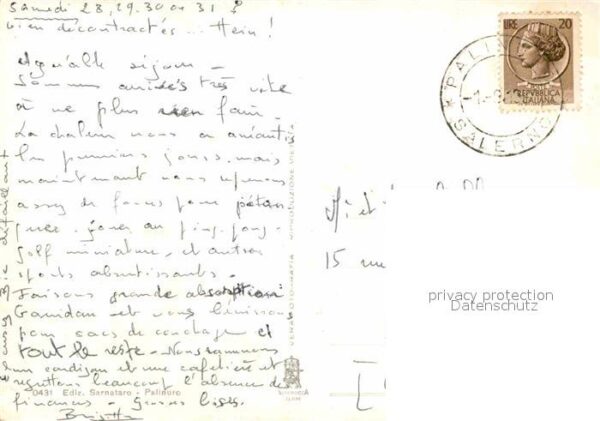 Samedi 28, 29. 30 ou 31 ?
bien décontractés... Hein !
Agréable séjour -
Sommes arrivés très vite
à ne plus rien faire.
La chaleur nous a anéantis
les premiers jours. mais
maintenant nous reprenons
assez de forces pour pétan
que. jouer au ping-pong.
golf miniature, et autres
sports abrutissants.
Faisons grande absorption
et vous
pour sacs de couchage et
tout le reste - Nous ramenons
un cardigan et une cafetière et
regrettons beaucoup l'absence de
finances - Grosses bises.
Brigitte
0431 Ediz. Sarnataro - Palinuro
VERA FOTO
RIPRODUZIONE VIETATA
LIRE 20
REPVBBLICA
ITALIANA
PALINURO
SALERNO
M. et
15 rue
privacy protection
Datenschutz